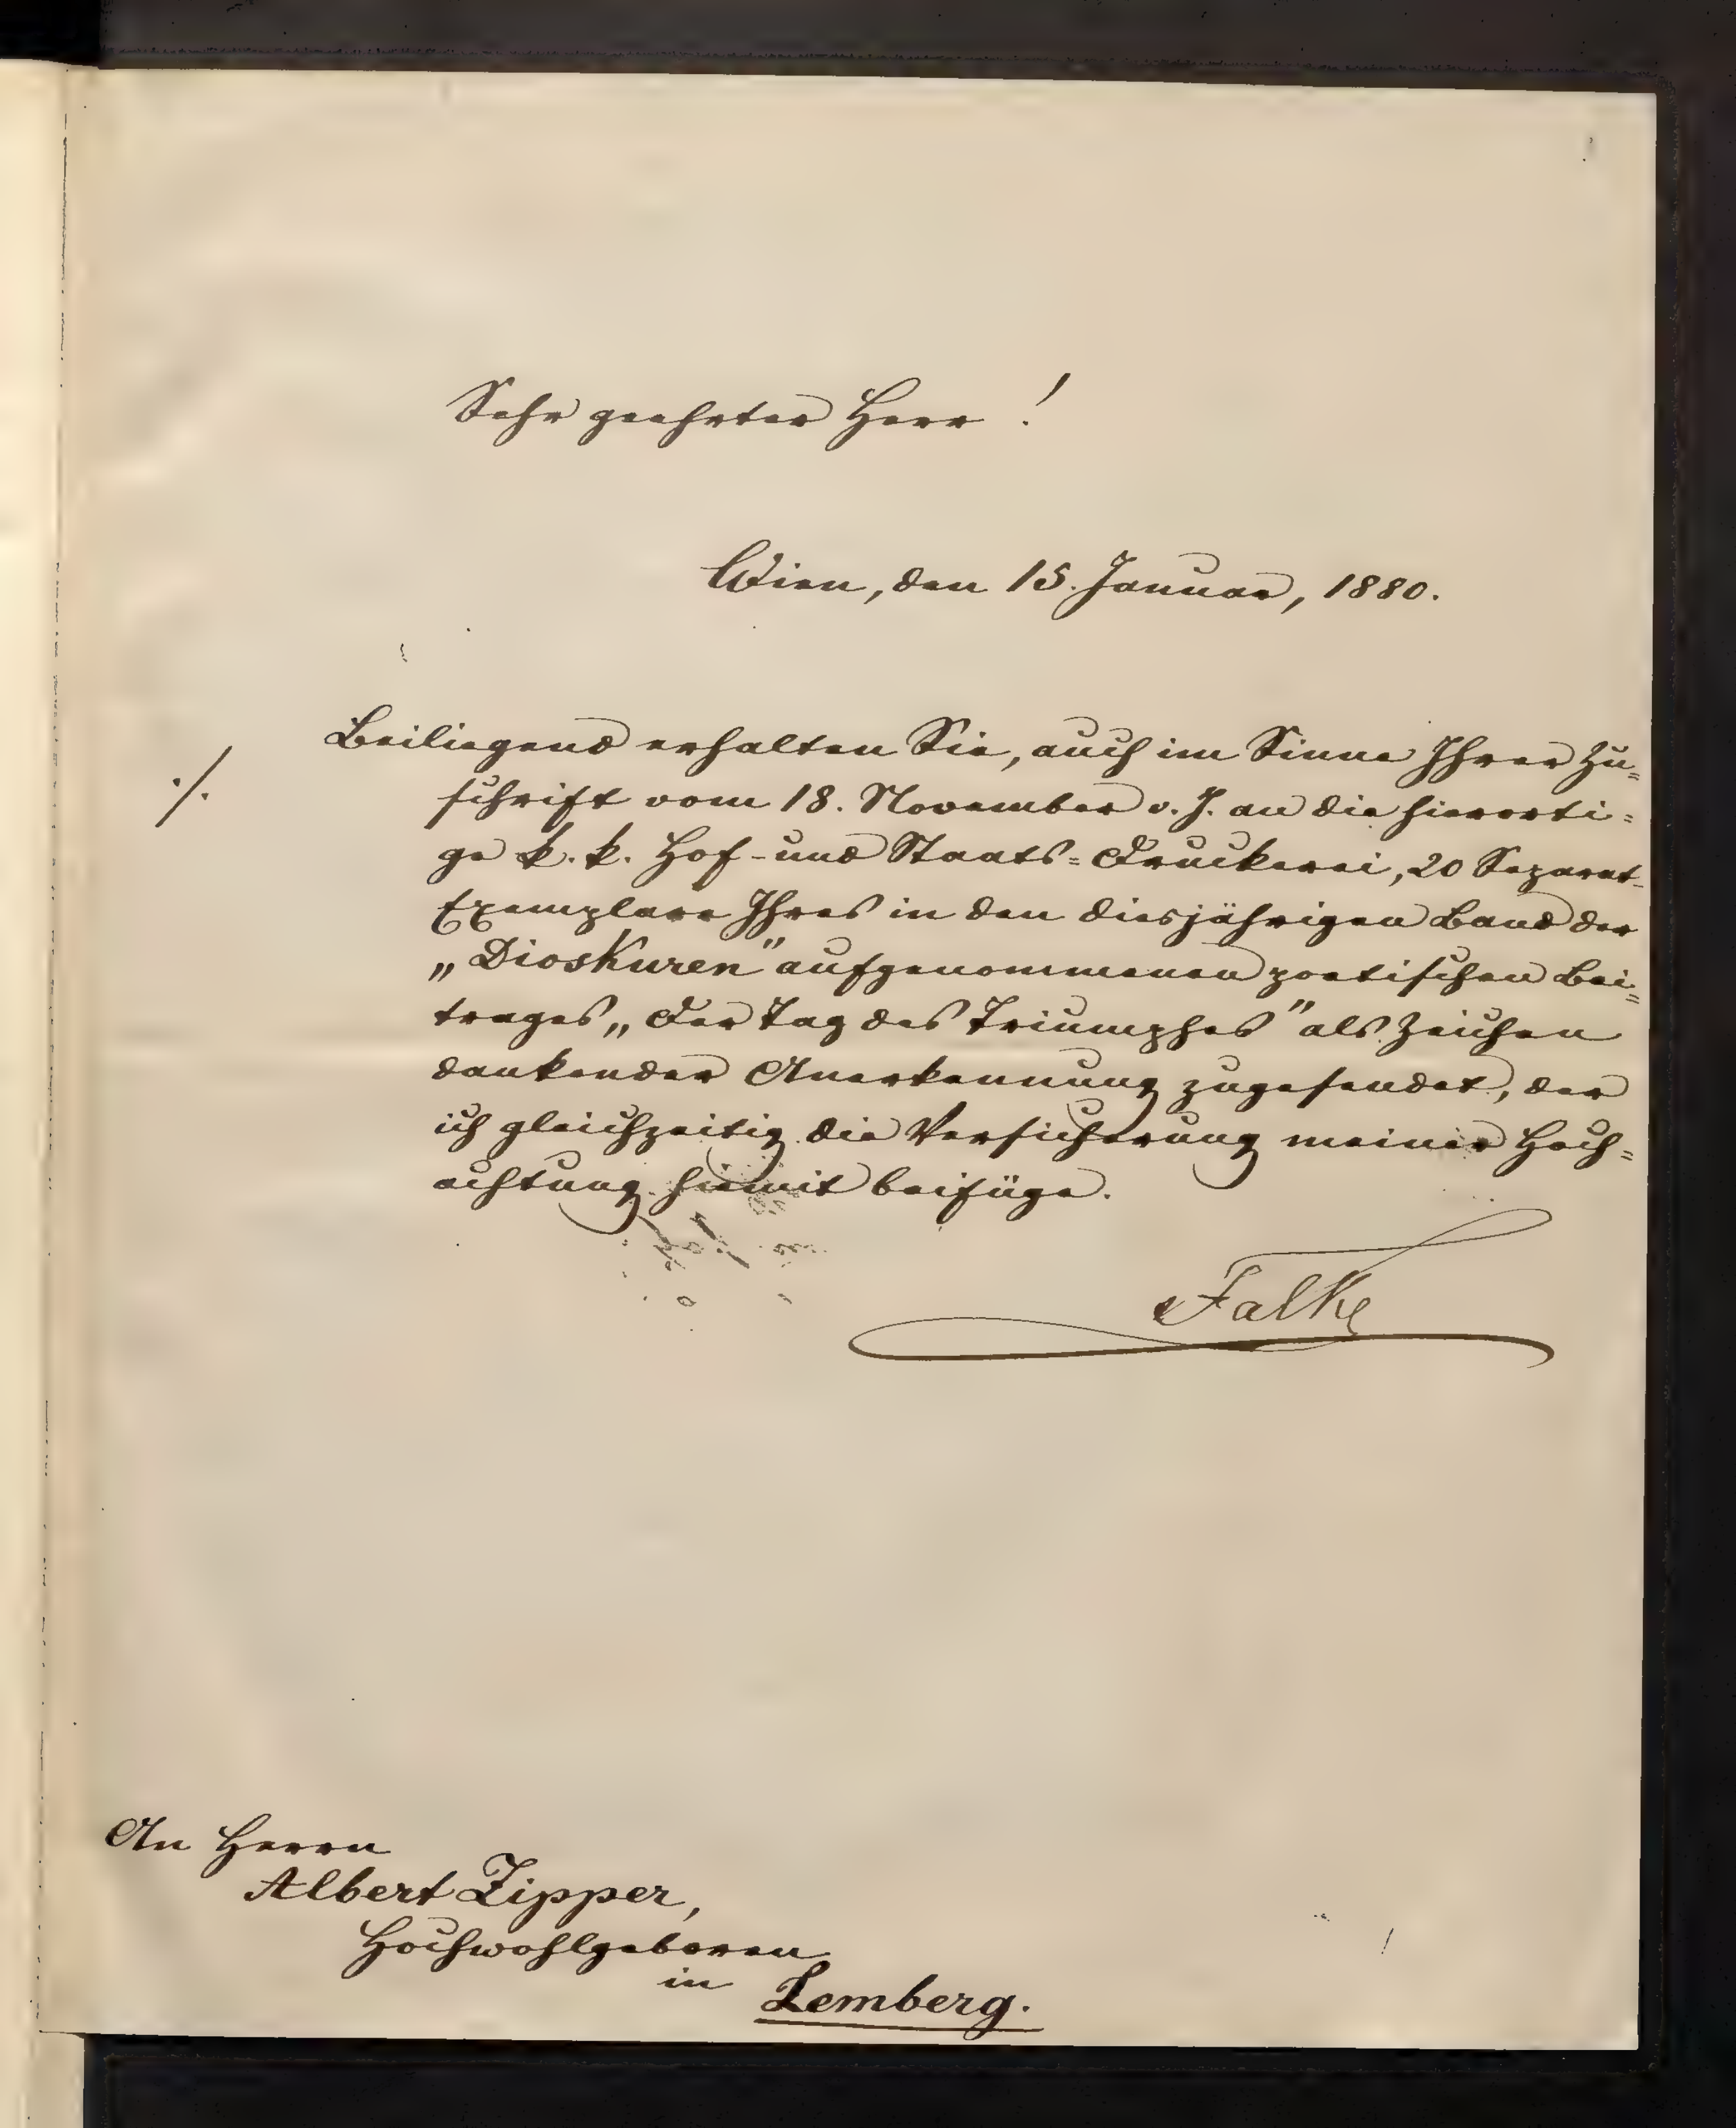 Sehr geehrter Herr !
Wien, den 15. Januar, 1880.
Beiliegend erhalten Sie, auch im Sinne Ihrer Zu=
./.
schrift vom 18. November v. J. an die hierorti=
ge k. k. Hof- und Staats=Druckerei, 20 Separat-
Exemplare Ihres in den diesjährigen Band der
„Dioskuren" aufgenommenen poetischen Bei=
trages „Der Tag des Triumphes" als Zeichen
dankender Anerkennung zugesendet, der
ich gleichzeitig die Versicherung meiner Hoch=
achtung hiemit beifüge.
Falke
An Herrn
Albert Zipper,
Hochwohlgeboren
in Lemberg.